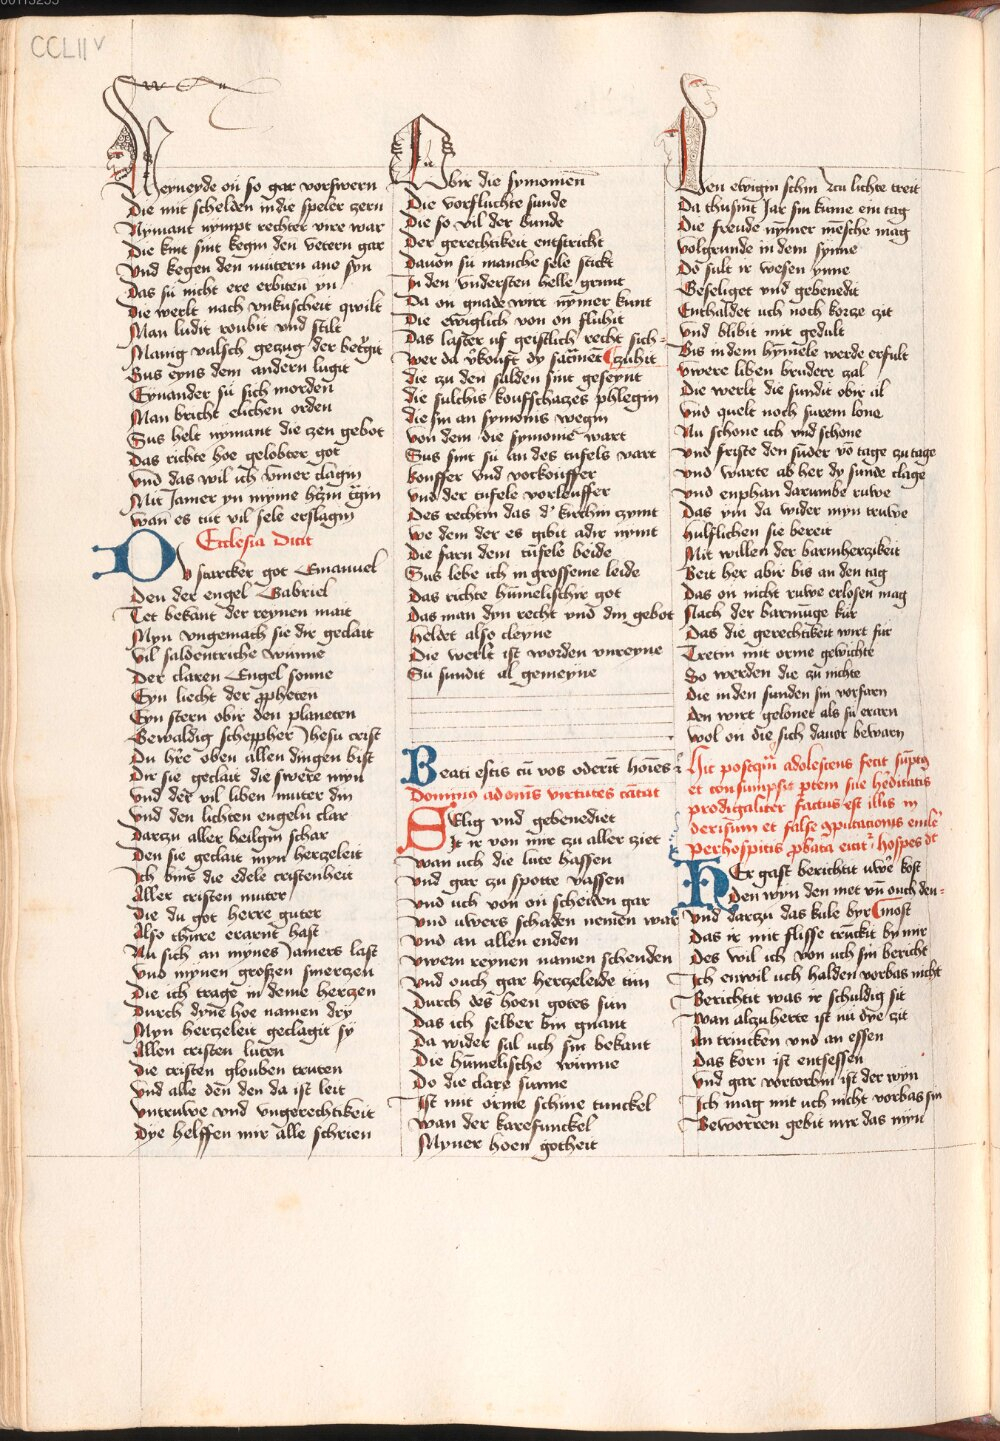 CCLII v
Meyneyde on so gar vorswern
Die mit schelden in die speler zern
Nymant nympt rechter vire war
Die kint sint kegin den vetern gar
Vnd kegen den mutern ane syn
Das su nicht ere erbiten yn
Die werlt nach vnkuscheit qwilt
Man ludit roubit vnd stilt
Manig valsch gezug der betrgit
Sus eyns dem andern lugit
Eynander su sich morden
Man bricht elichen orden
Sus helt nymant die zen gebot
Das richte hoe gelobter got
Vnd das wil ich vmer clagin
Mit Jamer yn myme hzin tgin
wan es tut vil sele erslagin
Ecclesia dicit
DV starcker got Emanuel
Den der engel Gabriel
Tet bekant der reynen mait
Myn vngemach sie dir geclait
Vil saldentriche wunne
Der claren Engel sonne
Eyn liecht der ppheten
Eyn stern obir den planeten
Gewaldig scheppher Jhesu crist
Du hre oben allen dingen bist
Dir sie geclait die swere myn
Vnd der vil liben muter din
Vnd den lichten engeln clar
Darczu aller heilgin schar
Den sie geclait myn herzeleit
Ich bins die edele cristenheit
Aller cristen muter
Die du got herre guter
Also thure erarnt hast
Nu sich an mynes Jamers last
Vnd mynen großen smerczen
Die ich trage in deme herczen
Durch dyne hoe namen dry
Myn herczeleit geclagit sy
Allen cristen luten
Die cristen glouben truten
Vnd alle den den da ist leit
Vntruwe vnd vngerechtikeit
Dye helffen mir alle schrien
Vbir die symonien
Die vorfluchte sunde
Die so vil der bunde
Der gerechtikeit entstrickt
Dauon su manche sele stickt
In den vndersten helle grunt
Da on gnade wirt nymer kunt
Die ewiglich von on fluhit
Das laster uf geistlich recht sich=
wer da vkouft dy sacment czuhit
die zu den sulden sint geseynt
die sulchis kouffschaczes phlegin
die sin an symonis wegin
Von dem die symonie wart
Sus sint su an des tufels vart
Kouffer vnd vorkouffer
Vnd der tufele vorleuffer
Des rechtin das d' kirchin zymt
we dem der es gibit adir nymt
Die farn dem tufele beide
Sus lebe ich in grosseme leide
Das richte humelischir got
Das man dyn recht vnd din gebot
Heldet also cleyne
Die werlt ist worden vnreyne
Su sundit al gemeyne
Beati estis cu vos oderit hoies
Dominus ad omis virtutes catat
SElig vnd gebenediet
Sit ir von mir zu aller ziet
wan uch die lute hassen
Vnd gar zu spotte vassen
Vnd uch von on scheiden gar
Vnd uwers schaden nemen war
Vnd an allen enden
Vwern reynen namen schenden
Vnd ouch gar herzeleide tun
Durch des hoen gotes sun
Das ich selber bin gnant
Da wider sal uch sin bekant
Die humelische wunne
Do die clare sunne
Ist mit orme schine tunckel
wan der karefunckel
Myner hoen gotheit
Den ewigin schin zcu lichte treit
Da thusint Jar sin kume ein tag
Die freude nymer mesche mag
Volgrunde in dem synne
Do sult ir wesen ynne
Geseliget vnd gebenedit
Enthaldet uch noch korze zit
Vnd blibit mit gedult
Bis in dem hymele werde erfult
Vwere liben brudere zal
Die werlt die sundit obir al
Vnd quelt noch surem lone
Nu schone ich vnd schone
Vnd friste den suder vo tage zu tage
Vnd warte ab her dy sunde clage
Vnd enphan darumbe ruwe
Das ym da wider myn truwe
Hulflichen sie bereit
Mit willen der barmherzikeit
Beit her abir bis an den tag
Das on nicht ruwe erlosen mag
Nach der barmuge kur
Das die gerechtikeit wirt fur
Tretin mit orme gewichte
So werden die zu nichte
Die in den sunden sin vorfarn
Den wirt gelonet als su erarn
wol on die sich dauor bewarn
Hic postqm adolescens fecit supto
et consumpsit ptem sue heditatis
prodigaliter factus est illis in
derisum et false oputacionis
per hospitis pbata hospes dt
HEr gast berichtit uwe kost
Den wyn den met vn ouch den=
Vnd darzu das kule byr most
Das ir mit flisse trunckit by mir
Des wil ich von uch sin bericht
Ich enwil uch halden vorbas nicht
Berichtit was ir schuldig sit
wan alzu herte ist nu dye zit
An trincken vnd an essen
Das korn ist entsessen
Vnd gar vortorbin ist der wyn
Ich mag mit uch nicht vorbas sin
Beworren gebit mir das myn